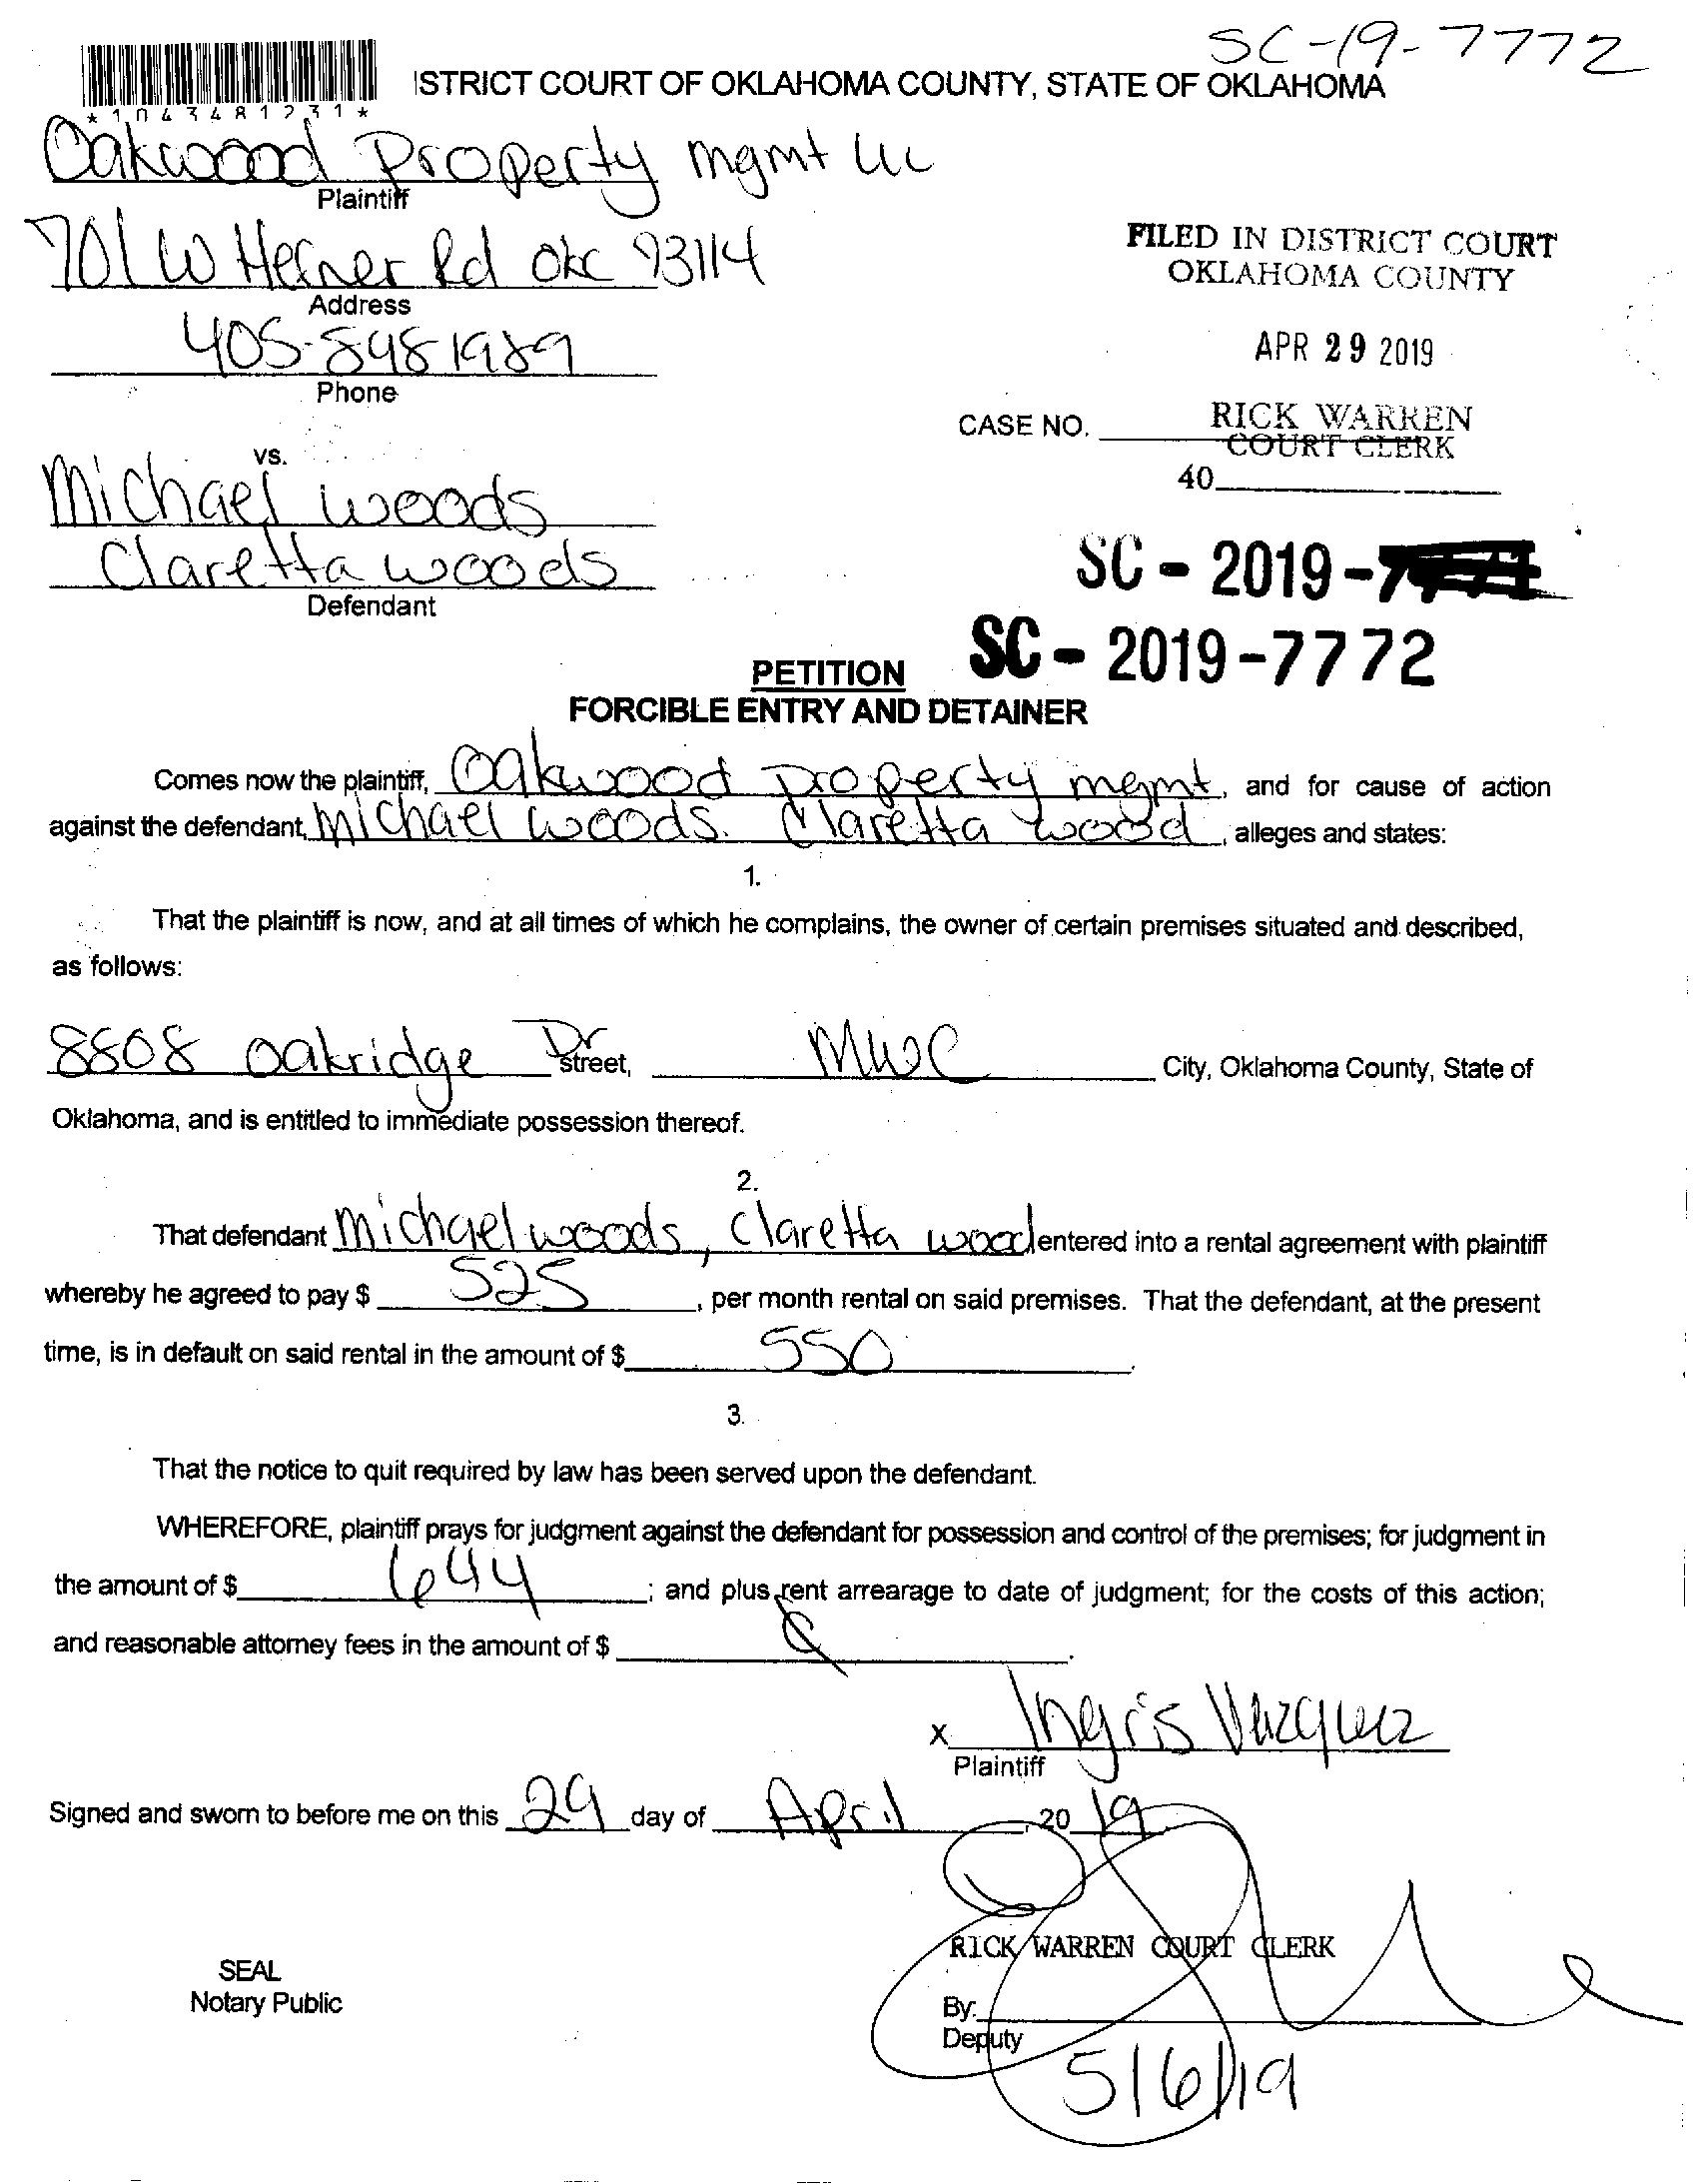 SC-19-7772
ISTRICT COURT OF OKLAHOMA COUNTY, STATE OF OKLAHOMA
*1043481231*
Oakwood Property mgmt LLC
Plaintiff
701 W Hefner Rd OKC 73114
Address
FILED IN DISTRICT COURT
OKLAHOMA COUNTY
405-8481989
Phone
APR 29 2019
RICK WARREN
COURT CLERK
CASE NO.
40
vs.
Michael woods
Claretta woods
Defendant
SC - 2019 -
SC - 2019 -7772
PETITION
FORCIBLE ENTRY AND DETAINER
Comes now the plaintiff, Oakwood Property mgmt, and for cause of action
against the defendant, Michael woods. Claretta wood, alleges and states:
1.
That the plaintiff is now, and at all times of which he complains, the owner of certain premises situated and described,
as follows:
8808 Oakridge Dr Street, MWC City, Oklahoma County, State of
Oklahoma, and is entitled to immediate possession thereof.
2.
That defendant Michael woods, Claretta wood entered into a rental agreement with plaintiff
whereby he agreed to pay $ 525, per month rental on said premises. That the defendant, at the present
time, is in default on said rental in the amount of $ 550.
3.
That the notice to quit required by law has been served upon the defendant.
WHEREFORE, plaintiff prays for judgment against the defendant for possession and control of the premises; for judgment in
the amount of $ 644; and plus rent arrearage to date of judgment; for the costs of this action;
and reasonable attorney fees in the amount of $ .
X Ingris Vazquez
Plaintiff
Signed and sworn to before me on this 29 day of April, 20 19
RICK WARREN COURT CLERK
SEAL
Notary Public
By:
Deputy
5/6/19